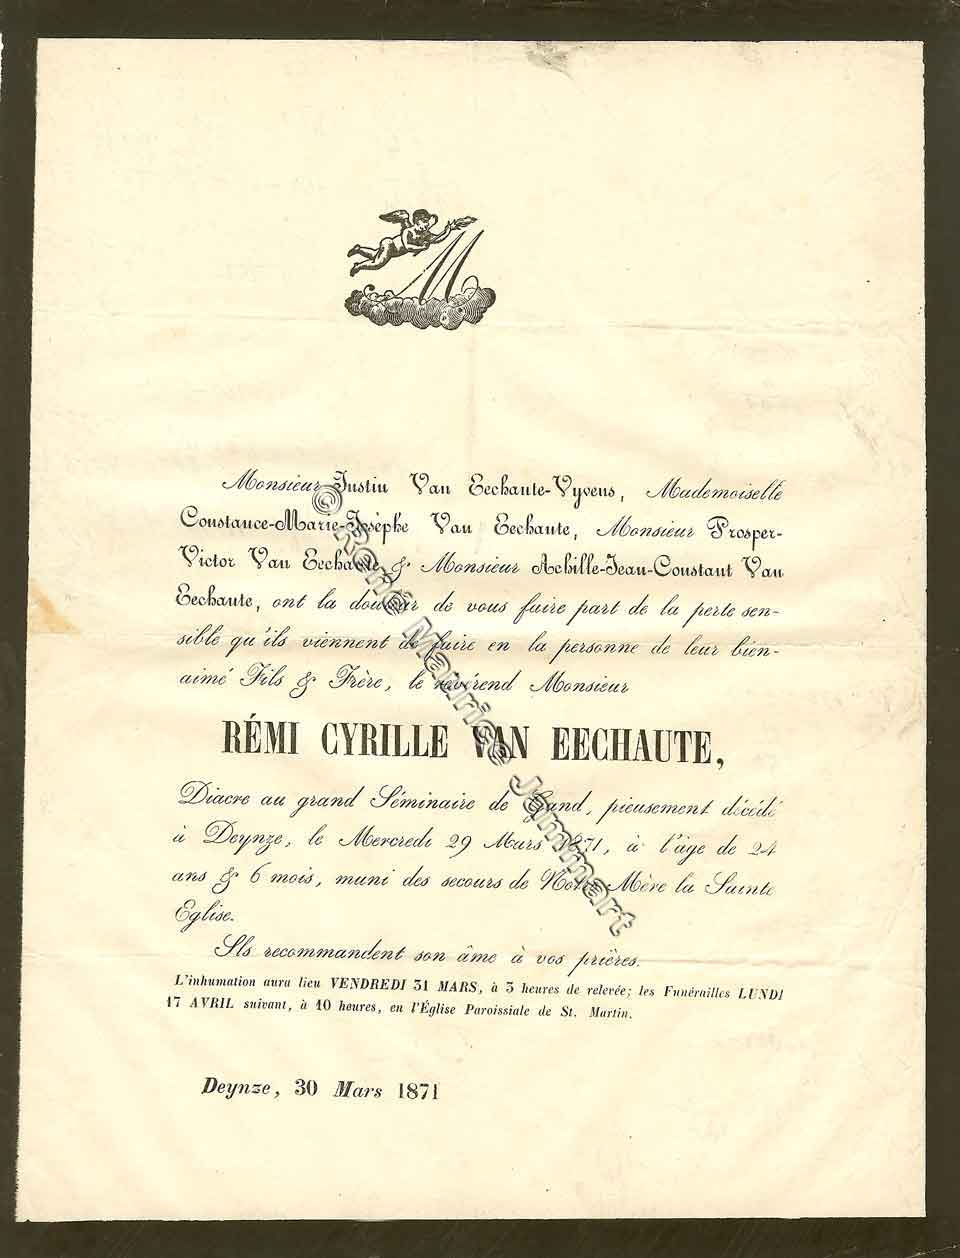 M
Monsieur Justin Van Eechaute-Vyvens, Mademoiselle
Constance-Marie-Josèphe Van Eechaute, Monsieur Prosper-
Victor Van Eechaute & Monsieur Achille-Jean-Constant Van
Eechaute, ont la douleur de vous faire part de la perte sen-
sible qu'ils viennent de faire en la personne de leur bien-
aimé Fils & Frère, le révérend Monsieur
RÉMI CYRILLE VAN EECHAUTE,
Diacre au grand Séminaire de Gand, pieusement décédé
à Deynze, le Mercredi 29 Mars 1871, à l'âge de 24
ans & 6 mois, muni des secours de Notre Mère la Sainte
Eglise.
Ils recommandent son âme à vos prières.
L'inhumation aura lieu VENDREDI 31 MARS, à 3 heures de relevée; les Funérailles LUNDI
17 AVRIL suivant, à 10 heures, en l'Église Paroissiale de St. Martin.
Deynze, 30 Mars 1871
© René Maurice Jammart